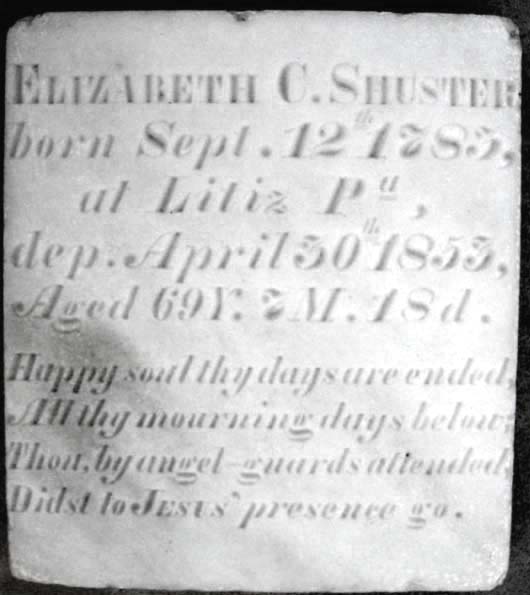 ELIZABETH C. SHUSTER
born Sept. 12th 1783,
at Litiz Pa,
dep. April 30th 1853,
Aged 69Y. 7M. 18d.
Happy soul thy days are ended,
All thy mourning days below:
Thou, by angel-guards attended,
Didst to JESUS' presence go.